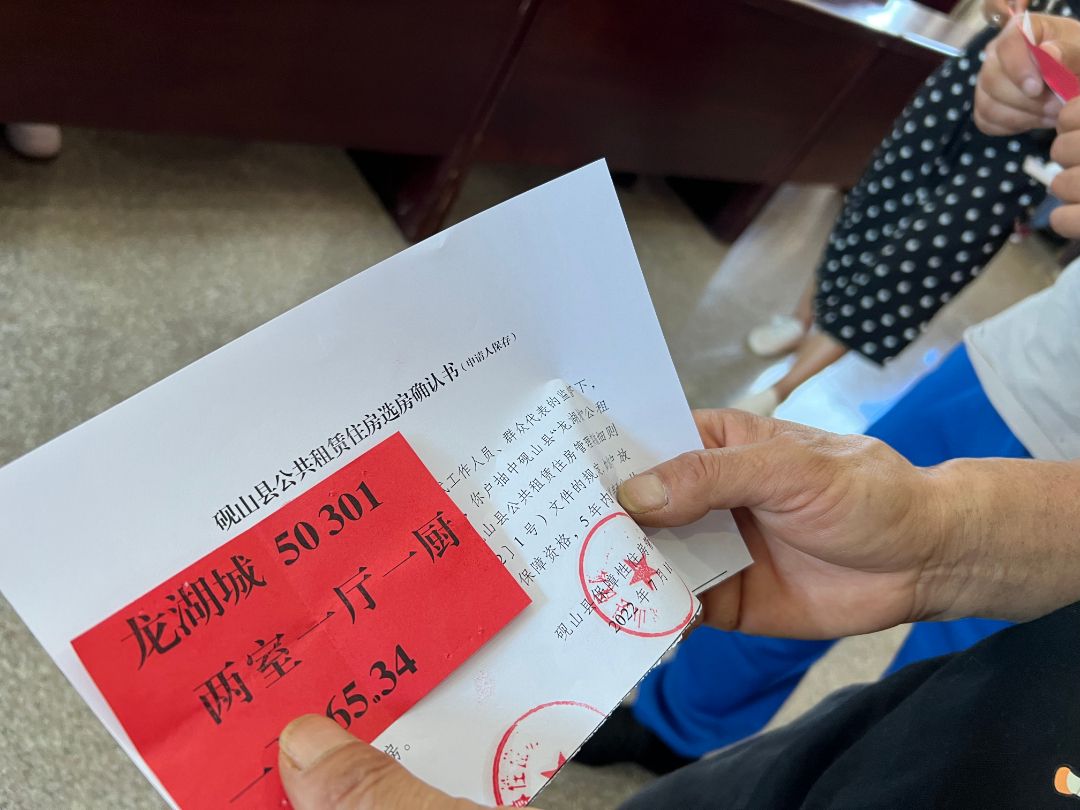 砚山县公共租赁住房选房确认书（申请人保存）
龙湖城 50 301
两室一厅一厨
一
65.34
工作人员、群众代表的监
下，
你户抽中砚山县“龙湖
公租
山县公共租赁住房管理
细则
2〕1号）文件的规定
放
保障资格，5年内
砚山县保障性住房
2022年7月
房。